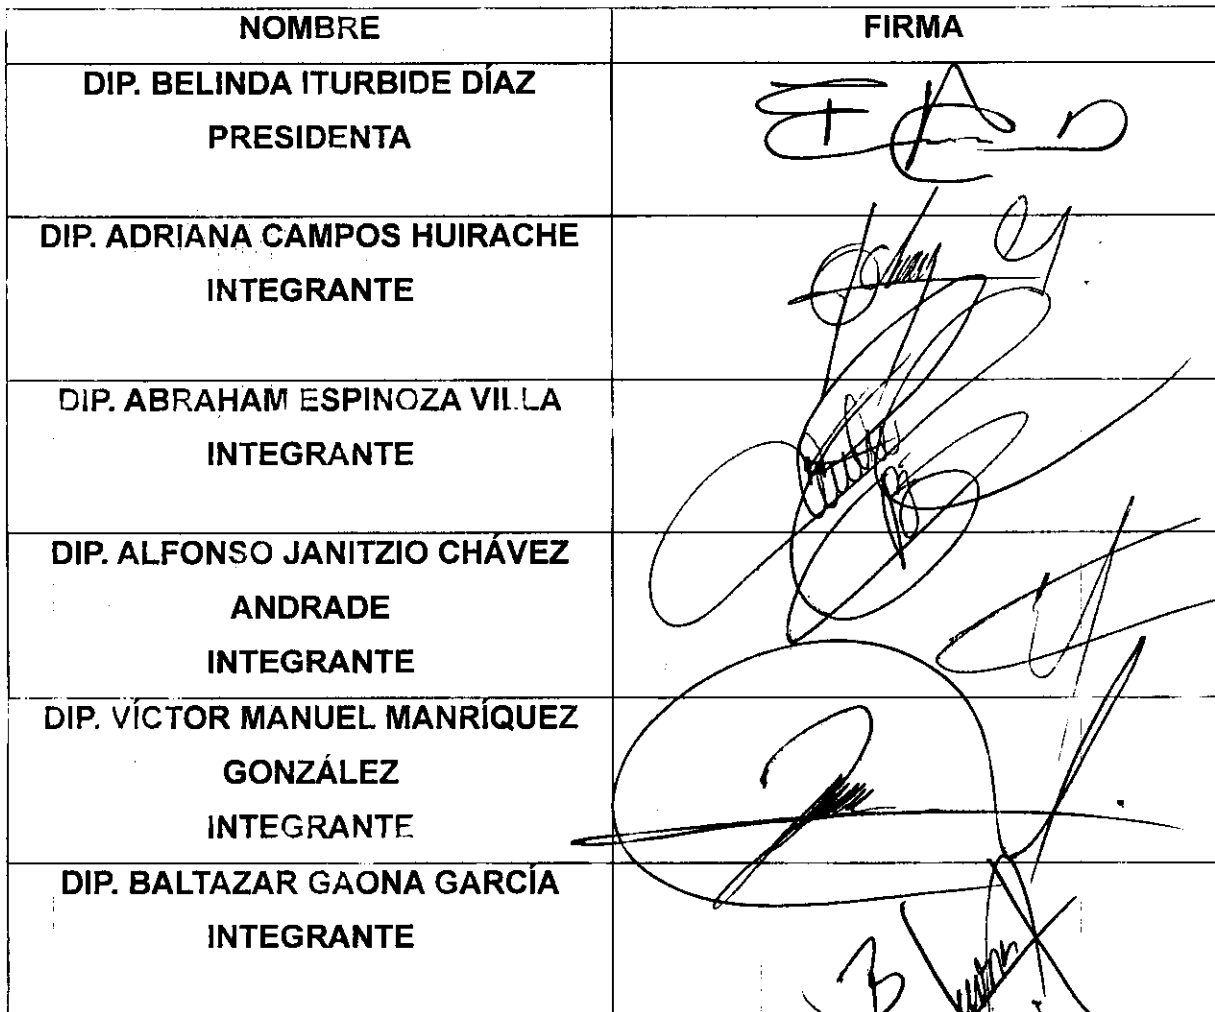 NOMBRE FIRMA
DIP. BELINDA ITURBIDE DÍAZ
PRESIDENTA
DIP. ADRIANA CAMPOS HUIRACHE
INTEGRANTE
DIP. ABRAHAM ESPINOZA VILLA
INTEGRANTE
DIP. ALFONSO JANITZIO CHÁVEZ
ANDRADE
INTEGRANTE
DIP. VÍCTOR MANUEL MANRÍQUEZ
GONZÁLEZ
INTEGRANTE
DIP. BALTAZAR GAONA GARCÍA
INTEGRANTE